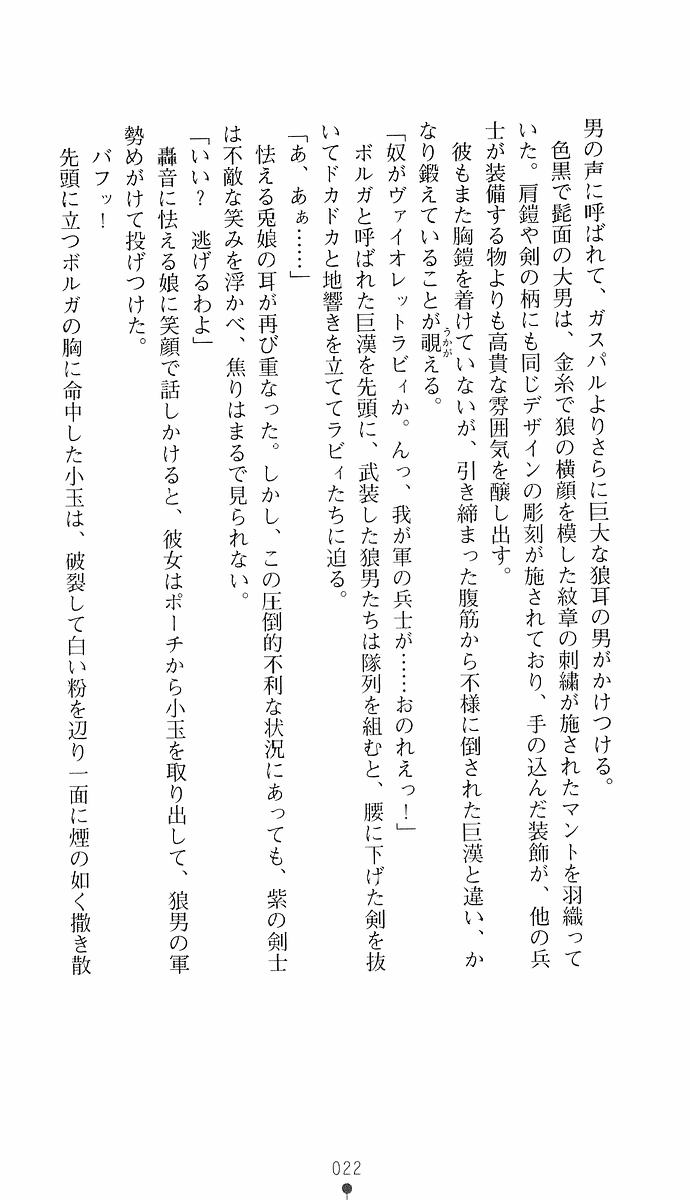 男の声に呼ばれて、ガスパルよりさらに巨大な狼耳の男がかけつける。
色黒で髭面の大男は、金糸で狼の横顔を模した紋章の刺繍が施されたマントを羽織って
いた。肩鎧や剣の柄にも同じデザインの彫刻が施されており、手の込んだ装飾が、他の兵
士が装備する物よりも高貴な雰囲気を醸し出す。
彼もまた胸鎧を着けていないが、引き締まった腹筋から不様に倒された巨漢と違い、か
なり鍛えていることが覗える。
うかが
「奴がヴァイオレットラビィか。んっ、我が軍の兵士が……おのれえっ！」
ボルガと呼ばれた巨漢を先頭に、武装した狼男たちは隊列を組むと、腰に下げた剣を抜
いてドカドカと地響きを立ててラビィたちに迫る。
「あ、あぁ……」
怯える兎娘の耳が再び重なった。しかし、この圧倒的不利な状況にあっても、紫の剣士
は不敵な笑みを浮かべ、焦りはまるで見られない。
「いい？　逃げるわよ」
轟音に怯える娘に笑顔で話しかけると、彼女はポーチから小玉を取り出して、狼男の軍
勢めがけて投げつけた。
バフッ！
先頭に立つボルガの胸に命中した小玉は、破裂して白い粉を辺り一面に煙の如く撒き散
022